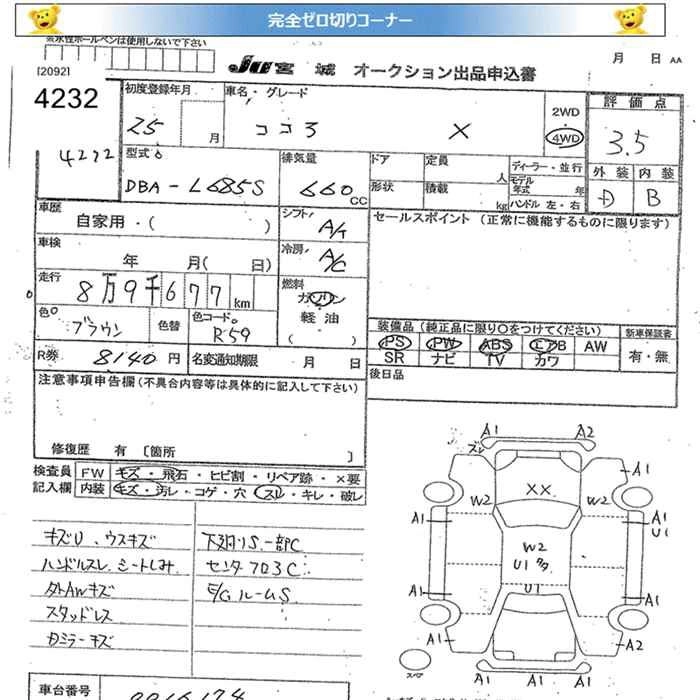 完全ゼロ切りコーナー
水性ボールペンは使用しないで下さい
月 日 AA
[2092]
JU宮城 オークション出品申込書
4232
4272
初度登録年月
25 月
車名・グレード
ココア X
2WD
・
4WD
評価点
3.5
型式
DBA-L685S
排気量
660 CC
ドア
定員 人
ディーラー・並行
モデル年式 年
形状
積載 kg
ハンドル 左・右
外装 内装
D B
車歴
自家用・( )
シフト
A/T
セールスポイント (正常に機能するものに限ります)
車検
年 月( 日)
冷房
A/C
走行
8万9千677km
燃料
ガソリン
軽油
( )
色
ブラウン
色替
色コード
R59
装備品 (純正品に限り○をつけてください)
新車保証書
PS PW ABS エアB AW
有・無
SR ナビ TV カワ
R券 8140円
名変通知期限 月 日
後日品
注意事項申告欄(不具合内容等は具体的に記入して下さい)
修復歴 有 〔箇所 〕
検査員記入欄
FW キズ・飛石・ヒビ割・リペア跡・×要
内装 キズ・汚レ・コゲ・穴 スレ・キレ・破レ
キズU、ウスキズ
ハンドルスレ シートしみ
外AWキズ
スタッドレス
カミラーキズ
下廻りS一部C
センタフロアC
E/GルームS
A1 A2
ズレ
A1 A1
XX
W2 W2
A1 A1
U1
W2
U1
U1
A1 A1
A1 A2
スペア
A1 A1 A1
車台番号